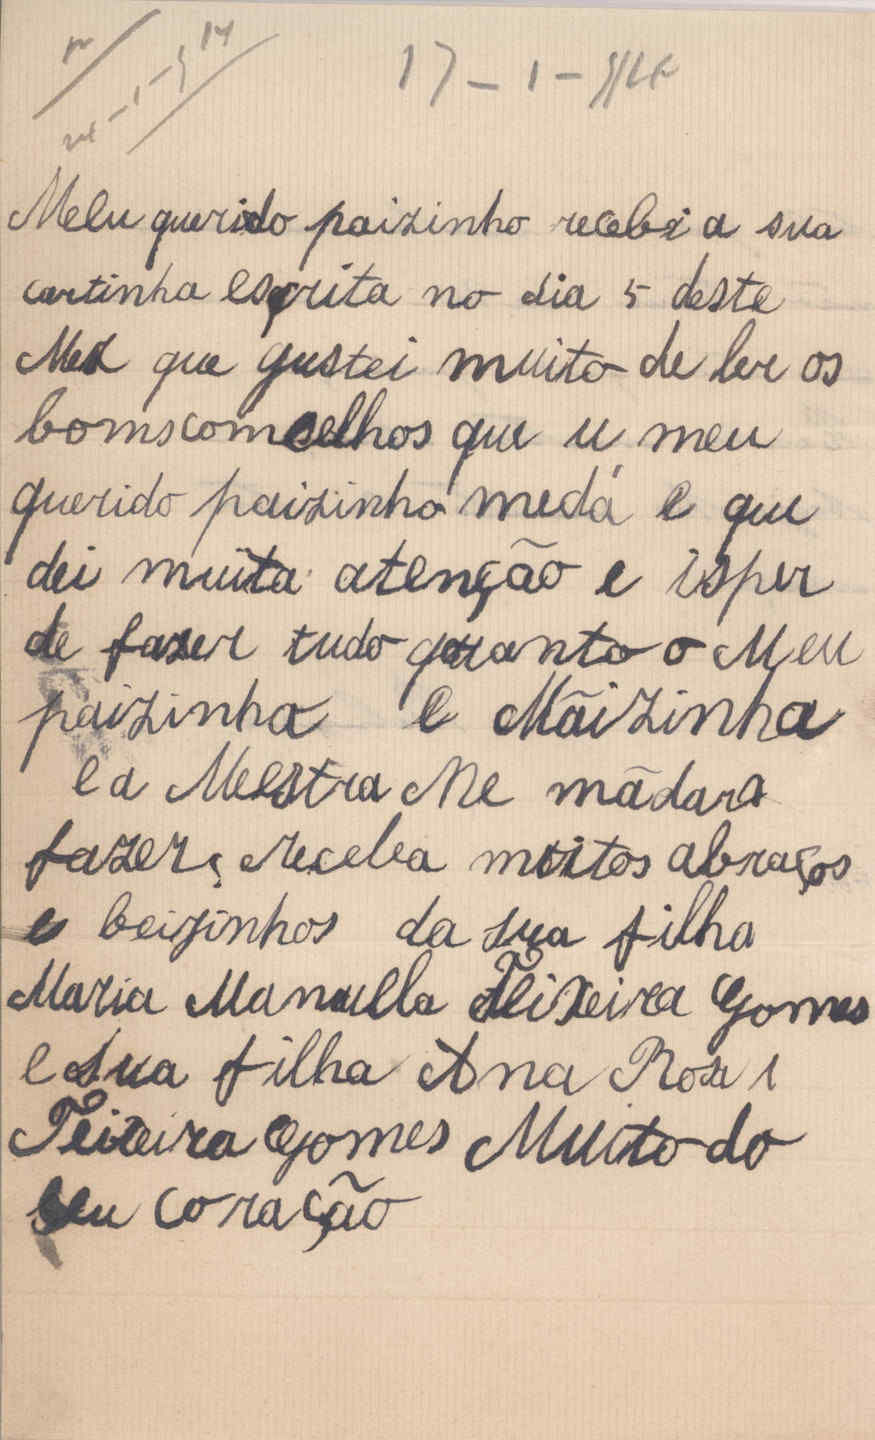 17-1-914
Meu querido paizinho recebi a sua
cartinha esqrita no dia 5 deste
Mez que gustei muito de ler os
boms comselhos que u meu
querido paizinho medá e que
dei muita atenção e isper
de fazer tudo quanto o Meu
paizinha e Mãizinha
e a Meestra Me mãdara
fazer, receba muitos abraços
e beizinhos da sua filha
Maria Manuella Teixeira Gomes
e sua filha Ana Rosa
Teixeira Gomes Muito do
seu coração